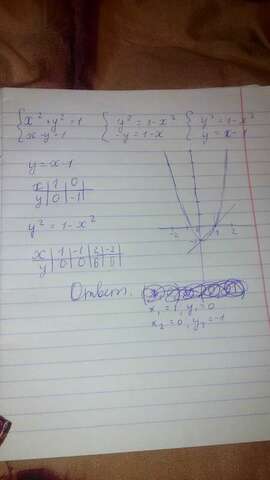 {x² + y² = 1 {y² = 1 - x² {y² = 1 - x²
{x - y = 1 {-y = 1 - x {y = x - 1
y = x - 1
x | 1 | 0
y | 0 | -1
y² = 1 - x²
x | 1 | -1 | 2 | -2
y | 0 | 0
-2 2
Ответ.
x₁ = 1, y₁ = 0
x₂ = 0, y₂ = -1